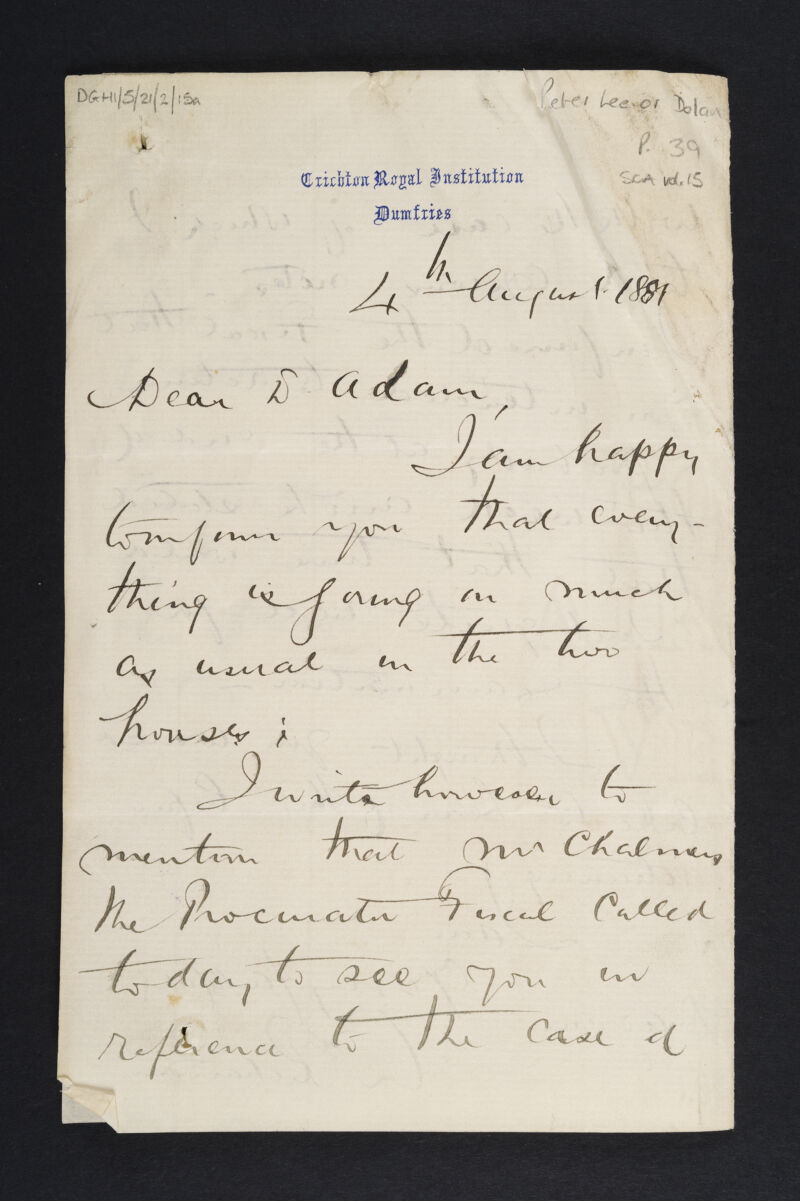 DGH1/5/21/2/15a
Peter Lee or Dolan
P. 39
SCA vol. 15
Crichton Royal Institution
Dumfries
4th August 1881
Dear Dr Adam,
I am happy
to inform you that every-
thing is going on much
as usual in the two
houses;
I write however to
mention that Mr Chalmers
the Procurator Fiscal called
to-day to see you in
reference to the case of